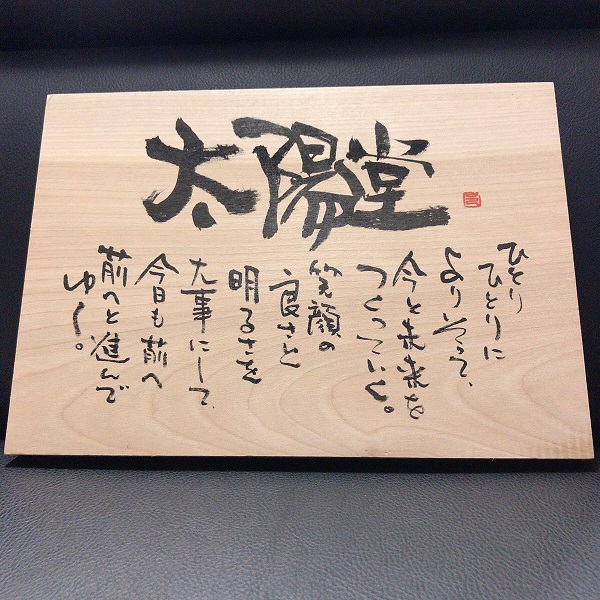 太陽堂
ひとり
ひとりに
よりそって、
今と未来を
つくっていく。
笑顔の
良さと
明るさを
大事にして、
今日も前へ
前へと進んで
ゆく。